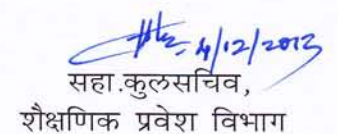 4/12/2013
सहा.कुलसचिव,
शैक्षणिक प्रवेश विभाग